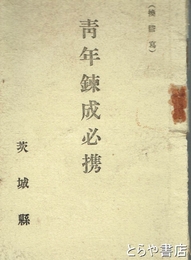 青年錬成必携
茨城縣
とらや書店